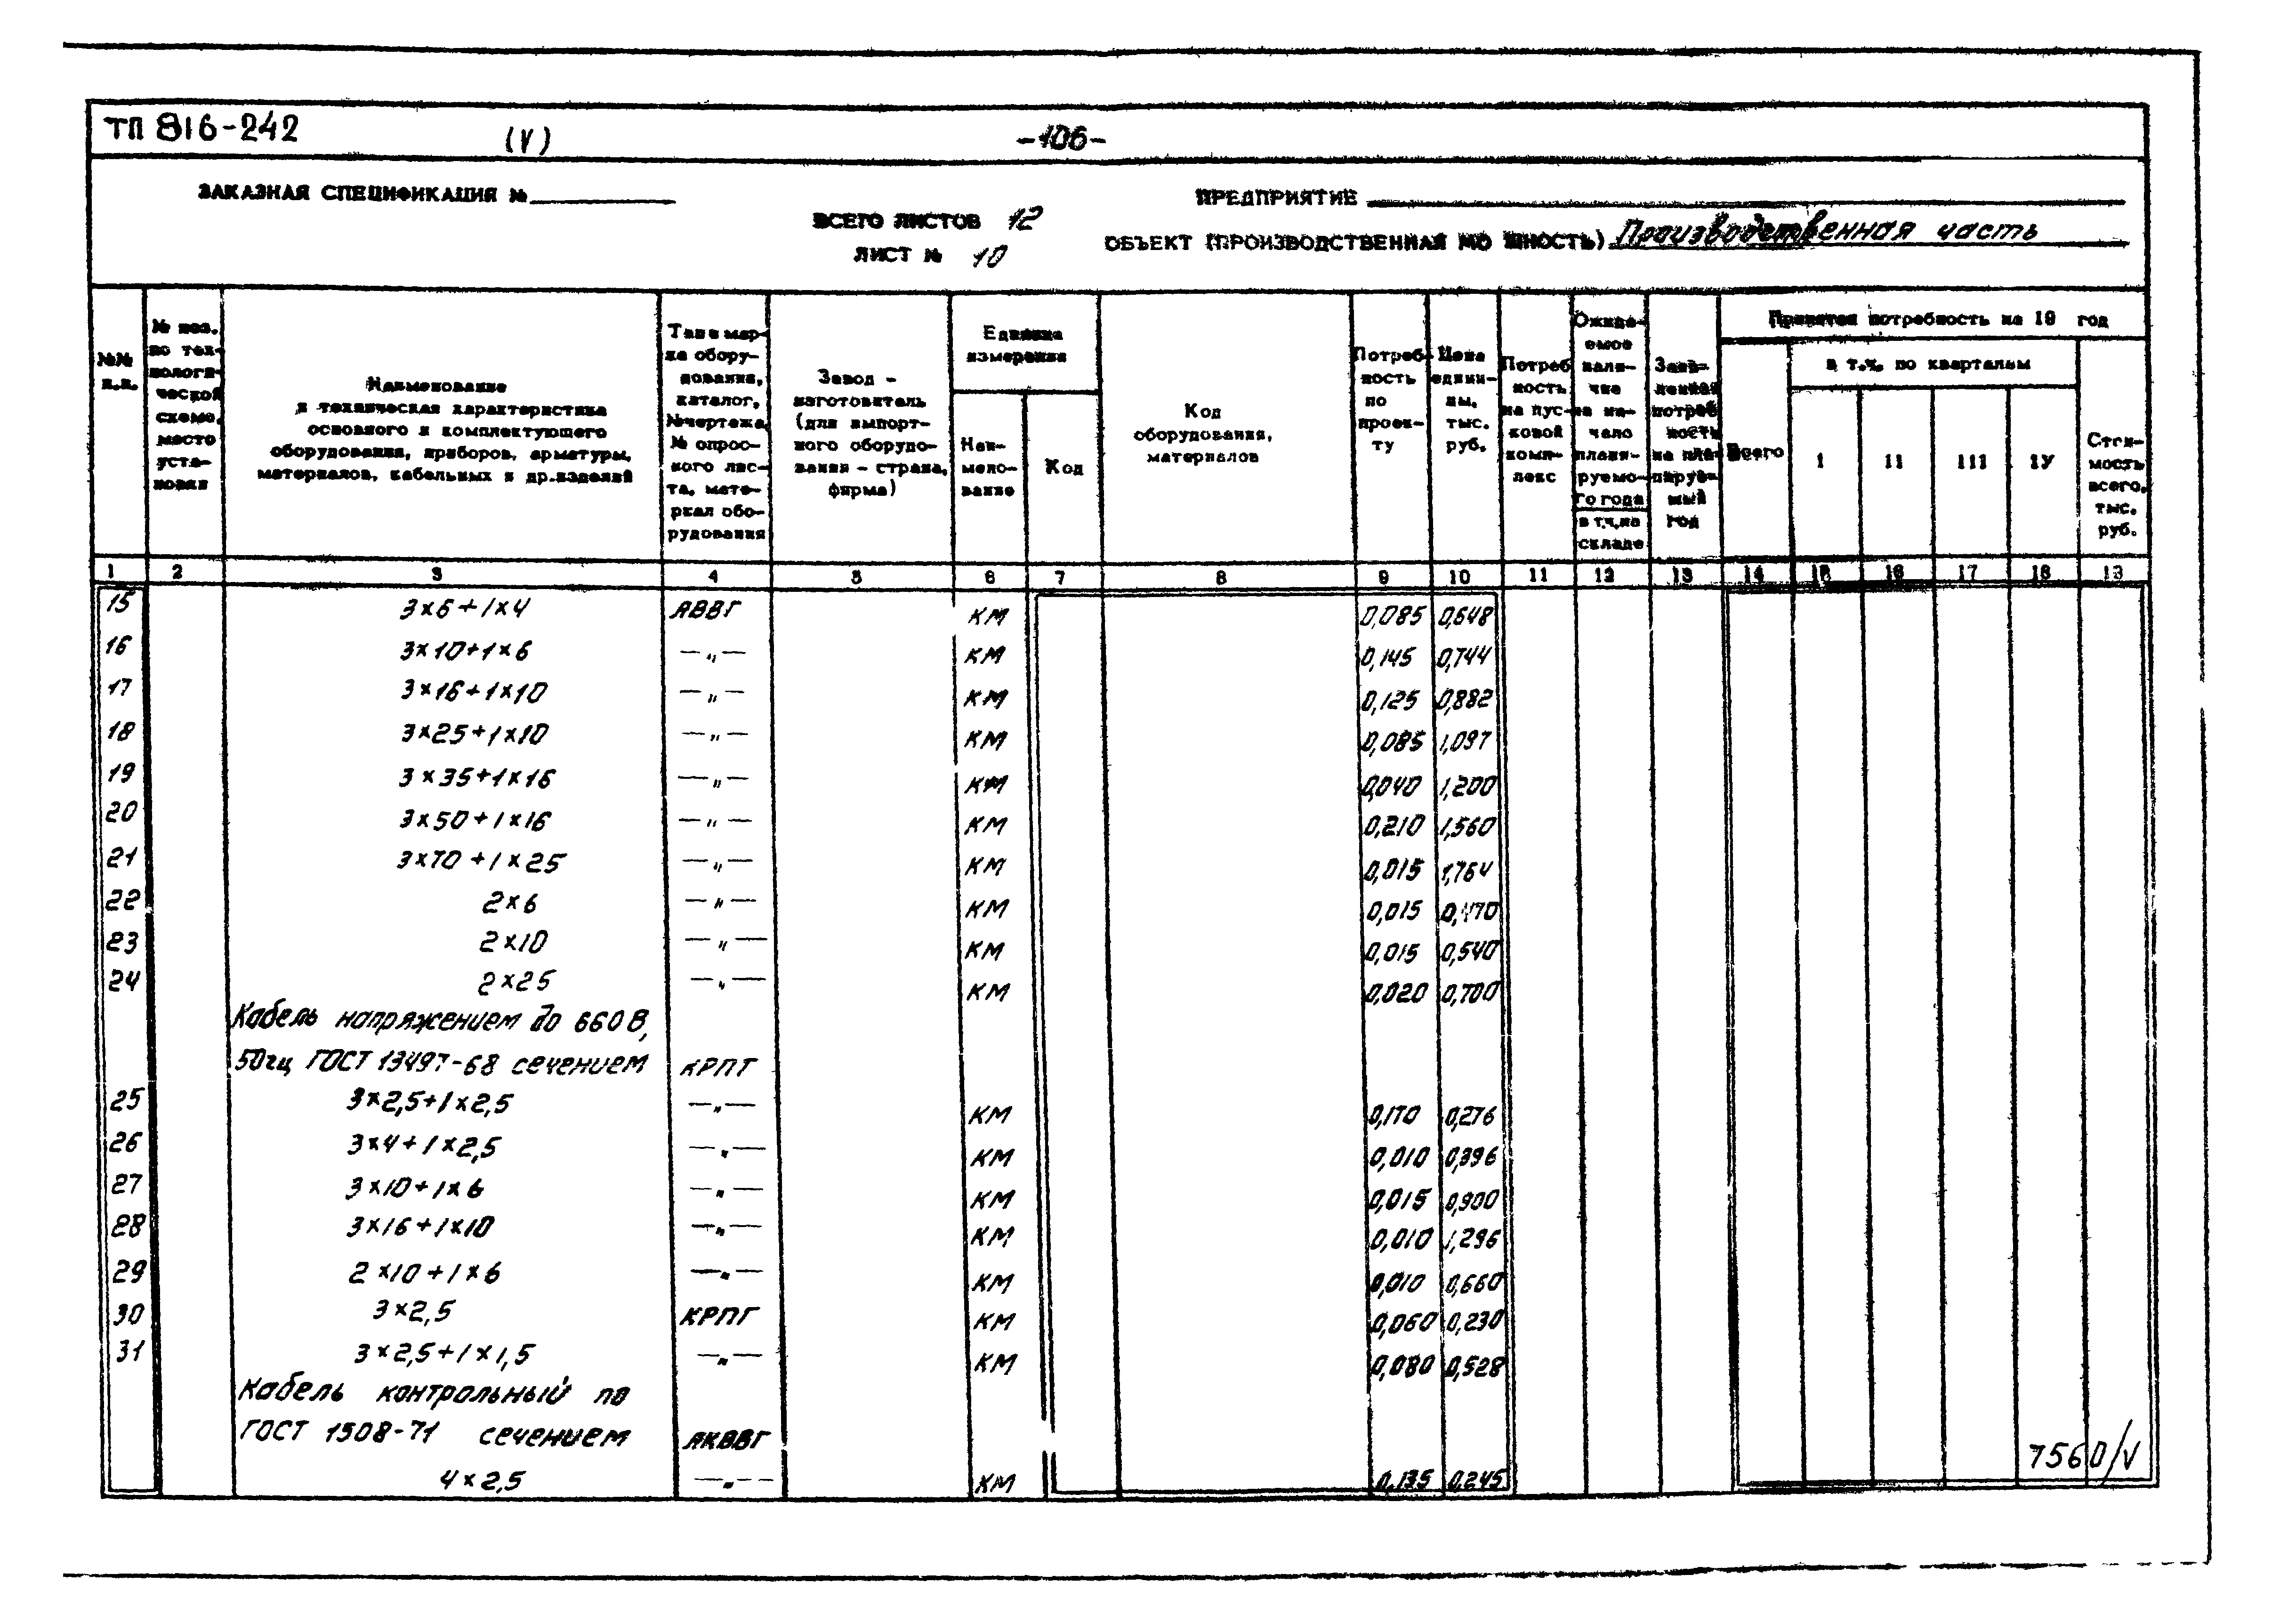 ТП 816-242 (V) -106-
ЗАКАЗНАЯ СПЕЦИФИКАЦИЯ №
ПРЕДПРИЯТИЕ
ВСЕГО ЛИСТОВ 12
ОБЪЕКТ (ПРОИЗВОДСТВЕННАЯ МОЩНОСТЬ) Производственная часть
ЛИСТ № 10
№№
п.п.
№ поз.
по тех-
нологи-
ческой
схеме,
место
уста-
новки
Наименование
и техническая характеристика
основного и комплектующего
оборудования, приборов, арматуры,
материалов, кабельных и др.изделий
Тип и мар-
ка обору-
дования,
каталог,
№чертежа,
№ опрос-
ного лис-
та, мате-
риал обо-
рудования
Завод -
изготовитель
(для импорт-
ного оборудо-
вания - страна,
фирма)
Единица
измерения
Наи-
мено-
вание
Код
Код
оборудования,
материалов
Потреб-
ность
по
проек-
ту
Цена
едини-
цы,
тыс.
руб.
Потреб
ность
на пус-
ковой
комп-
лекс
Ожида-
емое
нали-
чие
на на-
чало
плани-
руемо-
го года
в т.ч.на
складе
Заяв-
ленная
потреб
ность
на пла-
нируе-
мый
год
Принятая потребность на 19 год
Всего
в т.ч. по кварталам
I II III IУ
Стои-
мость
всего,
тыс.
руб.
1 2 3 4 5 6 7 8 9 10 11 12 13 14 15 16 17 18 19
15 3×6+1×4 АВВГ КМ 0,085 0,648
16 3×10+1×6 —„— КМ 0,145 0,744
17 3×16+1×10 —„— КМ 0,125 0,882
18 3×25+1×10 —„— КМ 0,085 1,097
19 3×35+1×16 —„— КМ 0,040 1,200
20 3×50+1×16 —„— КМ 0,210 1,560
21 3×70+1×25 —„— КМ 0,015 1,764
22 2×6 —„— КМ 0,015 0,470
23 2×10 —„— КМ 0,015 0,540
24 2×25 —„— КМ 0,020 0,700
Кабель напряжением до 660 В,
50гц ГОСТ 13497-68 сечением КРПТ
25 3×2,5+1×2,5 —„— КМ 0,170 0,276
26 3×4+1×2,5 —„— КМ 0,010 0,396
27 3×10+1×6 —„— КМ 0,015 0,900
28 3×16+1×10 —„— КМ 0,010 1,296
29 2×10+1×6 —„— КМ 0,010 0,660
30 3×2,5 КРПГ КМ 0,060 0,230
31 3×2,5+1×1,5 —„— КМ 0,080 0,528
Кабель контрольный по
ГОСТ 1508-71 сечением АКВВГ
4×2,5 —„— КМ 0,135 0,245
7560/V